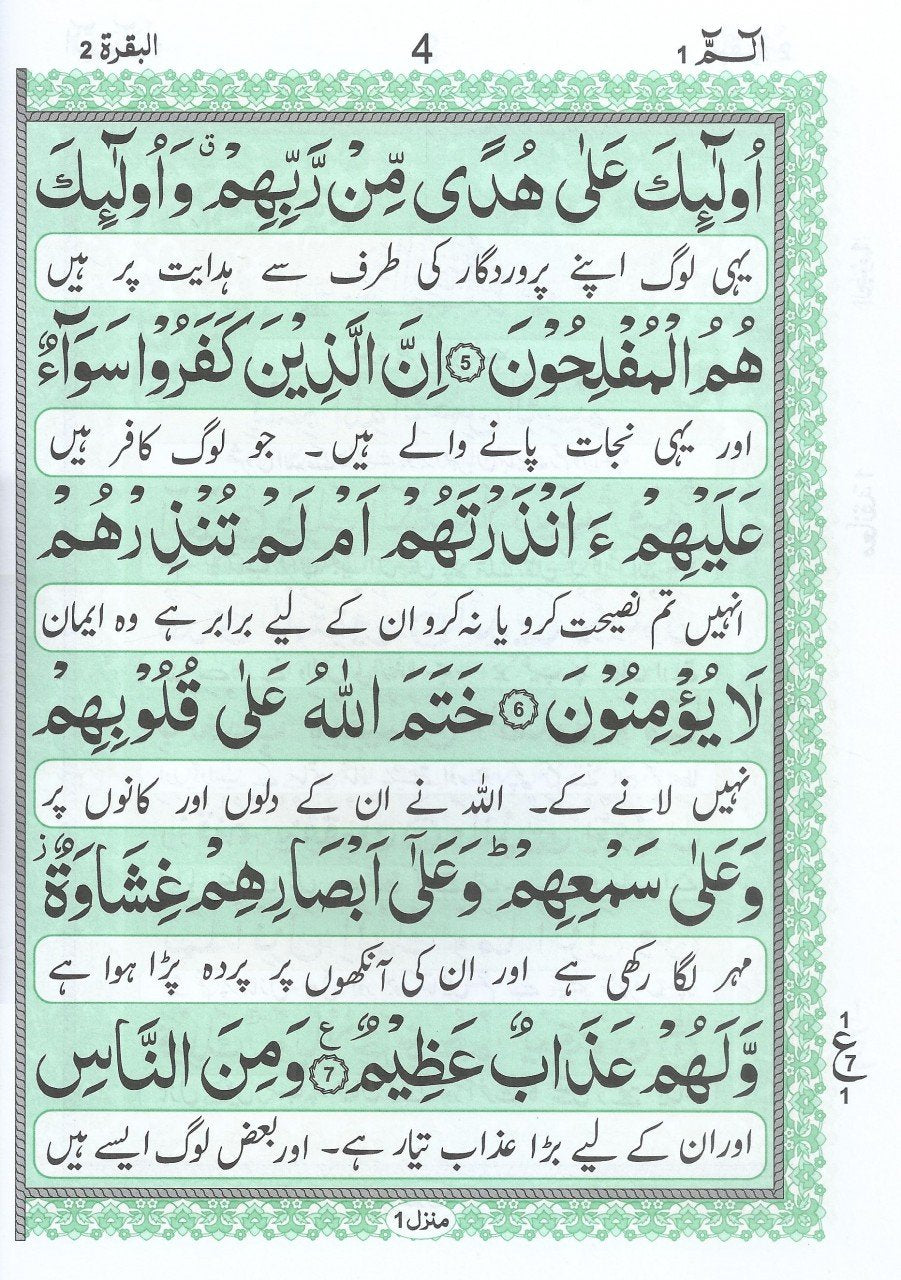 الٓـمّٓ 1
4
البقرة 2
اُولٰٓئِكَ عَلٰى هُدًى مِّنْ رَّبِّهِمْ ۗ وَاُولٰٓئِكَ
یہی لوگ اپنے پروردگار کی طرف سے ہدایت پر ہیں
هُمُ الْمُفْلِحُوْنَ 5 اِنَّ الَّذِيْنَ كَفَرُوْا سَوَآءٌ
اور یہی نجات پانے والے ہیں۔ جو لوگ کافر ہیں
عَلَيْهِمْ ءَ اَنْذَرْتَهُمْ اَمْ لَمْ تُنْذِرْهُمْ
انہیں تم نصیحت کرو یا نہ کرو ان کے لیے برابر ہے وہ ایمان
لَا يُؤْمِنُوْنَ 6 خَتَمَ اللّٰهُ عَلٰى قُلُوْبِهِمْ
نہیں لانے کے۔ اللہ نے ان کے دلوں اور کانوں پر
وَعَلٰى سَمْعِهِمْ ؕ وَعَلٰٓى اَبْصَارِهِمْ غِشَاوَةٌ ز
مہر لگا رکھی ہے اور ان کی آنکھوں پر پردہ پڑا ہوا ہے
وَّلَهُمْ عَذَابٌ عَظِيْمٌ ع 7 وَمِنَ النَّاسِ
اور ان کے لیے بڑا عذاب تیار ہے۔ اور بعض لوگ ایسے ہیں
1
ع
7
1
منزل 1